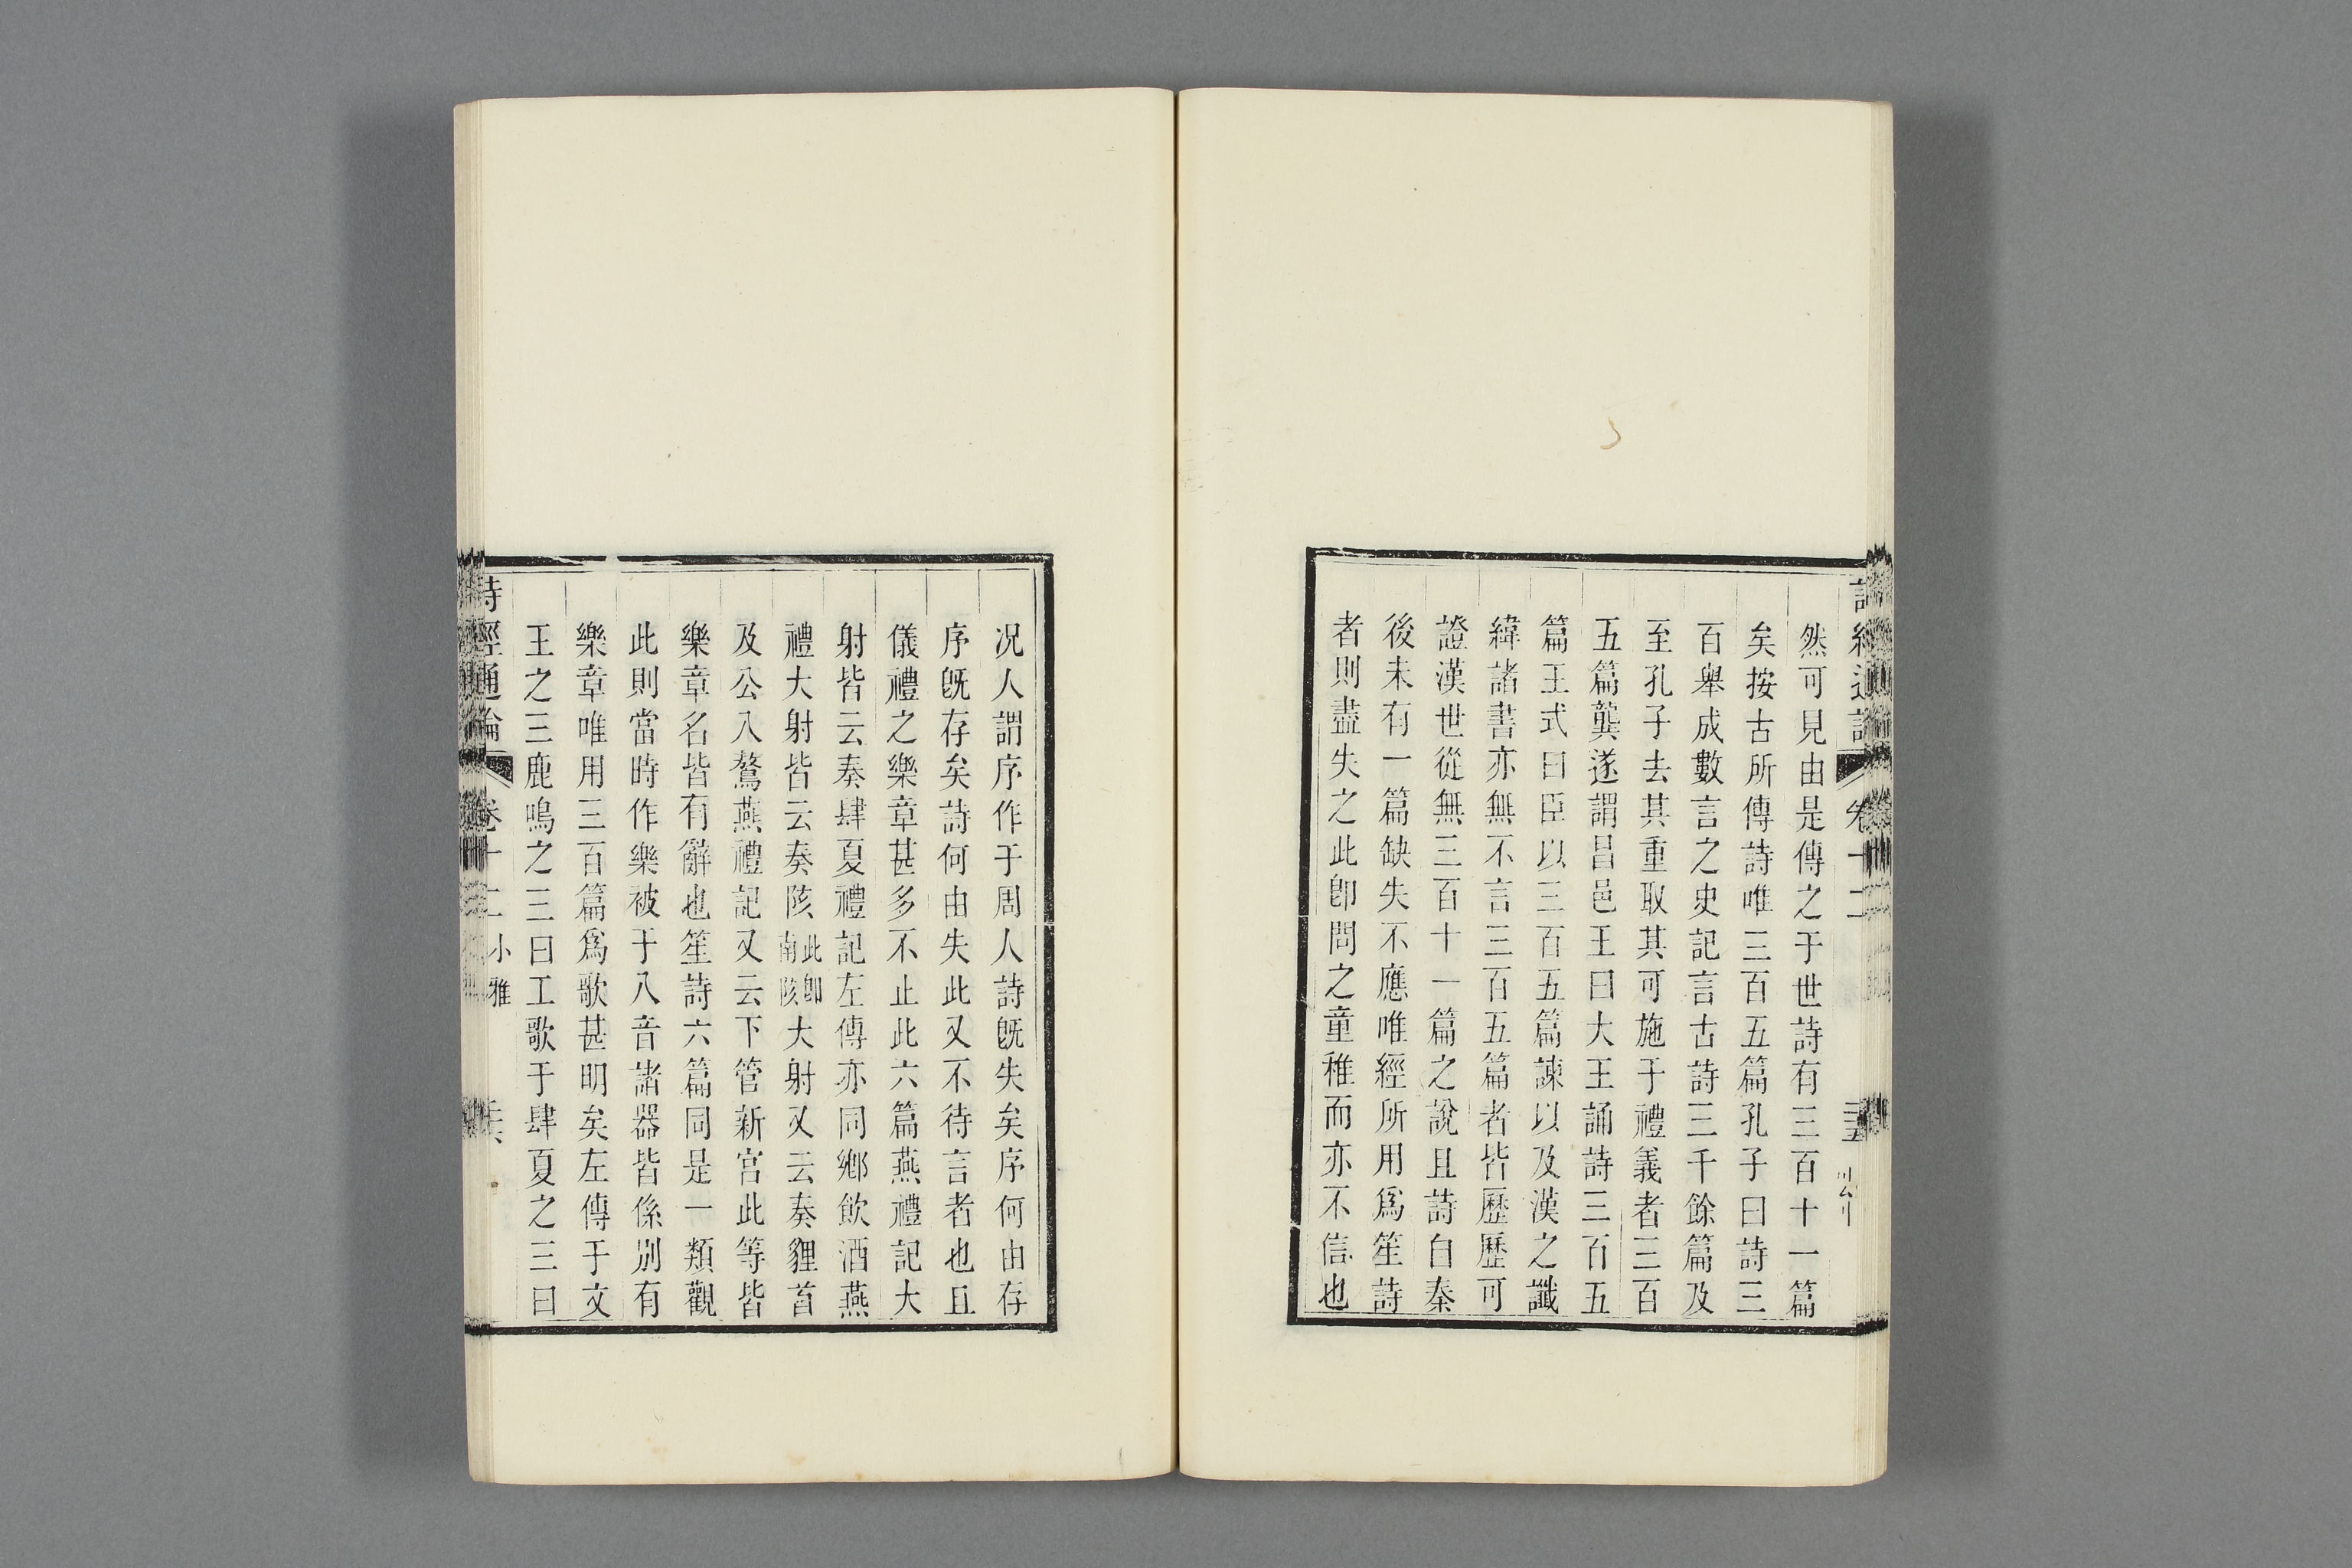 然可見由是傳之于世詩有三百十一篇
矣按古所傳詩唯三百五篇孔子曰詩三
百舉成數言之史記言古詩三千餘篇及
至孔子去其重取其可施于禮義者三百
五篇龔遂謂昌邑王曰大王誦詩三百五
篇王式曰臣以三百五篇諫以及漢之讖
緯諸書亦無不言三百五篇者皆歷歷可
證漢世從無三百十一篇之說且詩自秦
後未有一篇缺失不應唯經所用爲笙詩
者則盡失之此卽問之童稚而亦不信也
况人謂序作于周人詩旣失矣序何由存
序旣存矣詩何由失此又不待言者也且
儀禮之樂章甚多不止此六篇燕禮記大
射皆云奏肆夏禮記左傳亦同鄉飲酒燕
禮大射皆云奏陔此卽南陔大射又云奏貍首
及公入驁燕禮記又云下管新宮此等皆
樂章名皆有辭也笙詩六篇同是一類觀
此則當時作樂被于八音諸器皆係別有
樂章唯用三百篇爲歌甚明矣左傳于文
王之三鹿鳴之三曰工歌于肆夏之三曰
詩經通論 卷十二 小雅